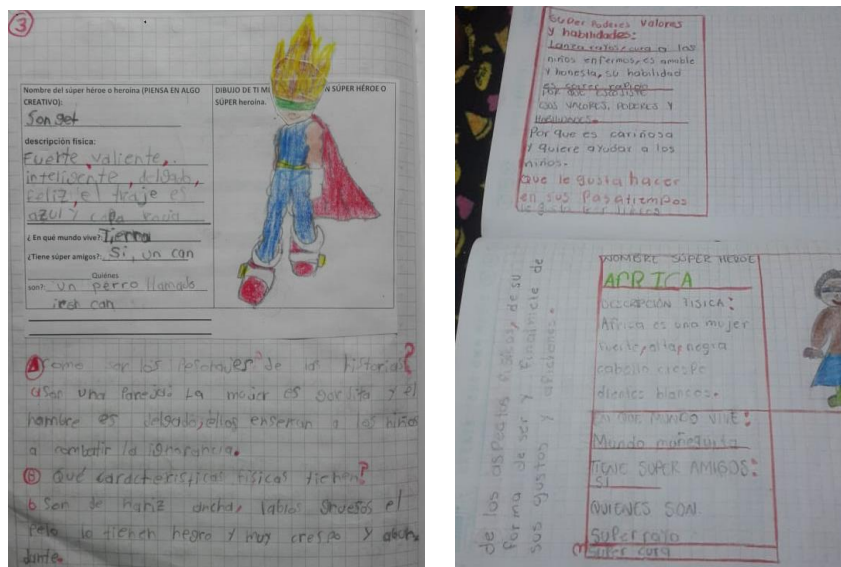 3
Nombre del súper héroe o heroína (PIENSA EN ALGO
CREATIVO):
Son get
descripción física:
Fuerte, valiente,
inteligente, delgado,
feliz, el traje es
azul y capa
¿En qué mundo vive?: Tierra
¿Tiene súper amigos?: Si, un can
Quiénes
son?: un perro llamado
can
DIBUJO DE TI MI N SÚPER HÉROE O
SÚPER heroína.
A como son los Personajes de la historia?
a Son una Pareja La mujer es gordita y el
hombre es delgado, ellos enseñan a los niños
a combatir la ignorancia.
B Qué características físicas tienen?
b Son de nariz ancha, labios gruesos el
pelo lo tienen negro y muy crespo y abun
dante.
Super Poderes Valores
y habilidades:
Lanza rayos cura a los
niños enfermos, es amable
y honesta, su habilidad
es correr rapido
POR QUE ESCOGISTE
ESOS VALORES, PODERES Y
HABILIDADES.
Por que es cariñosa
y quiere ayudar a los
niños.
Que le gusta hacer
en sus Pasatiempos
le gusta leer libros
de los aspectos físicos, de su
forma de ser y finalmente de
sus gustos y aficiones.
NOMBRE SUPER HEROE
AFRICA
DESCRIPCION FISICA:
Africa es una mujer
fuerte, alta, negra
cabello crespo
dientes blancos.
EN QUE MUNDO VIVE:
Mundo muñequita
TIENE SUPER AMIGOS:
SI
QUIENES SON
Super rayo
Super cura